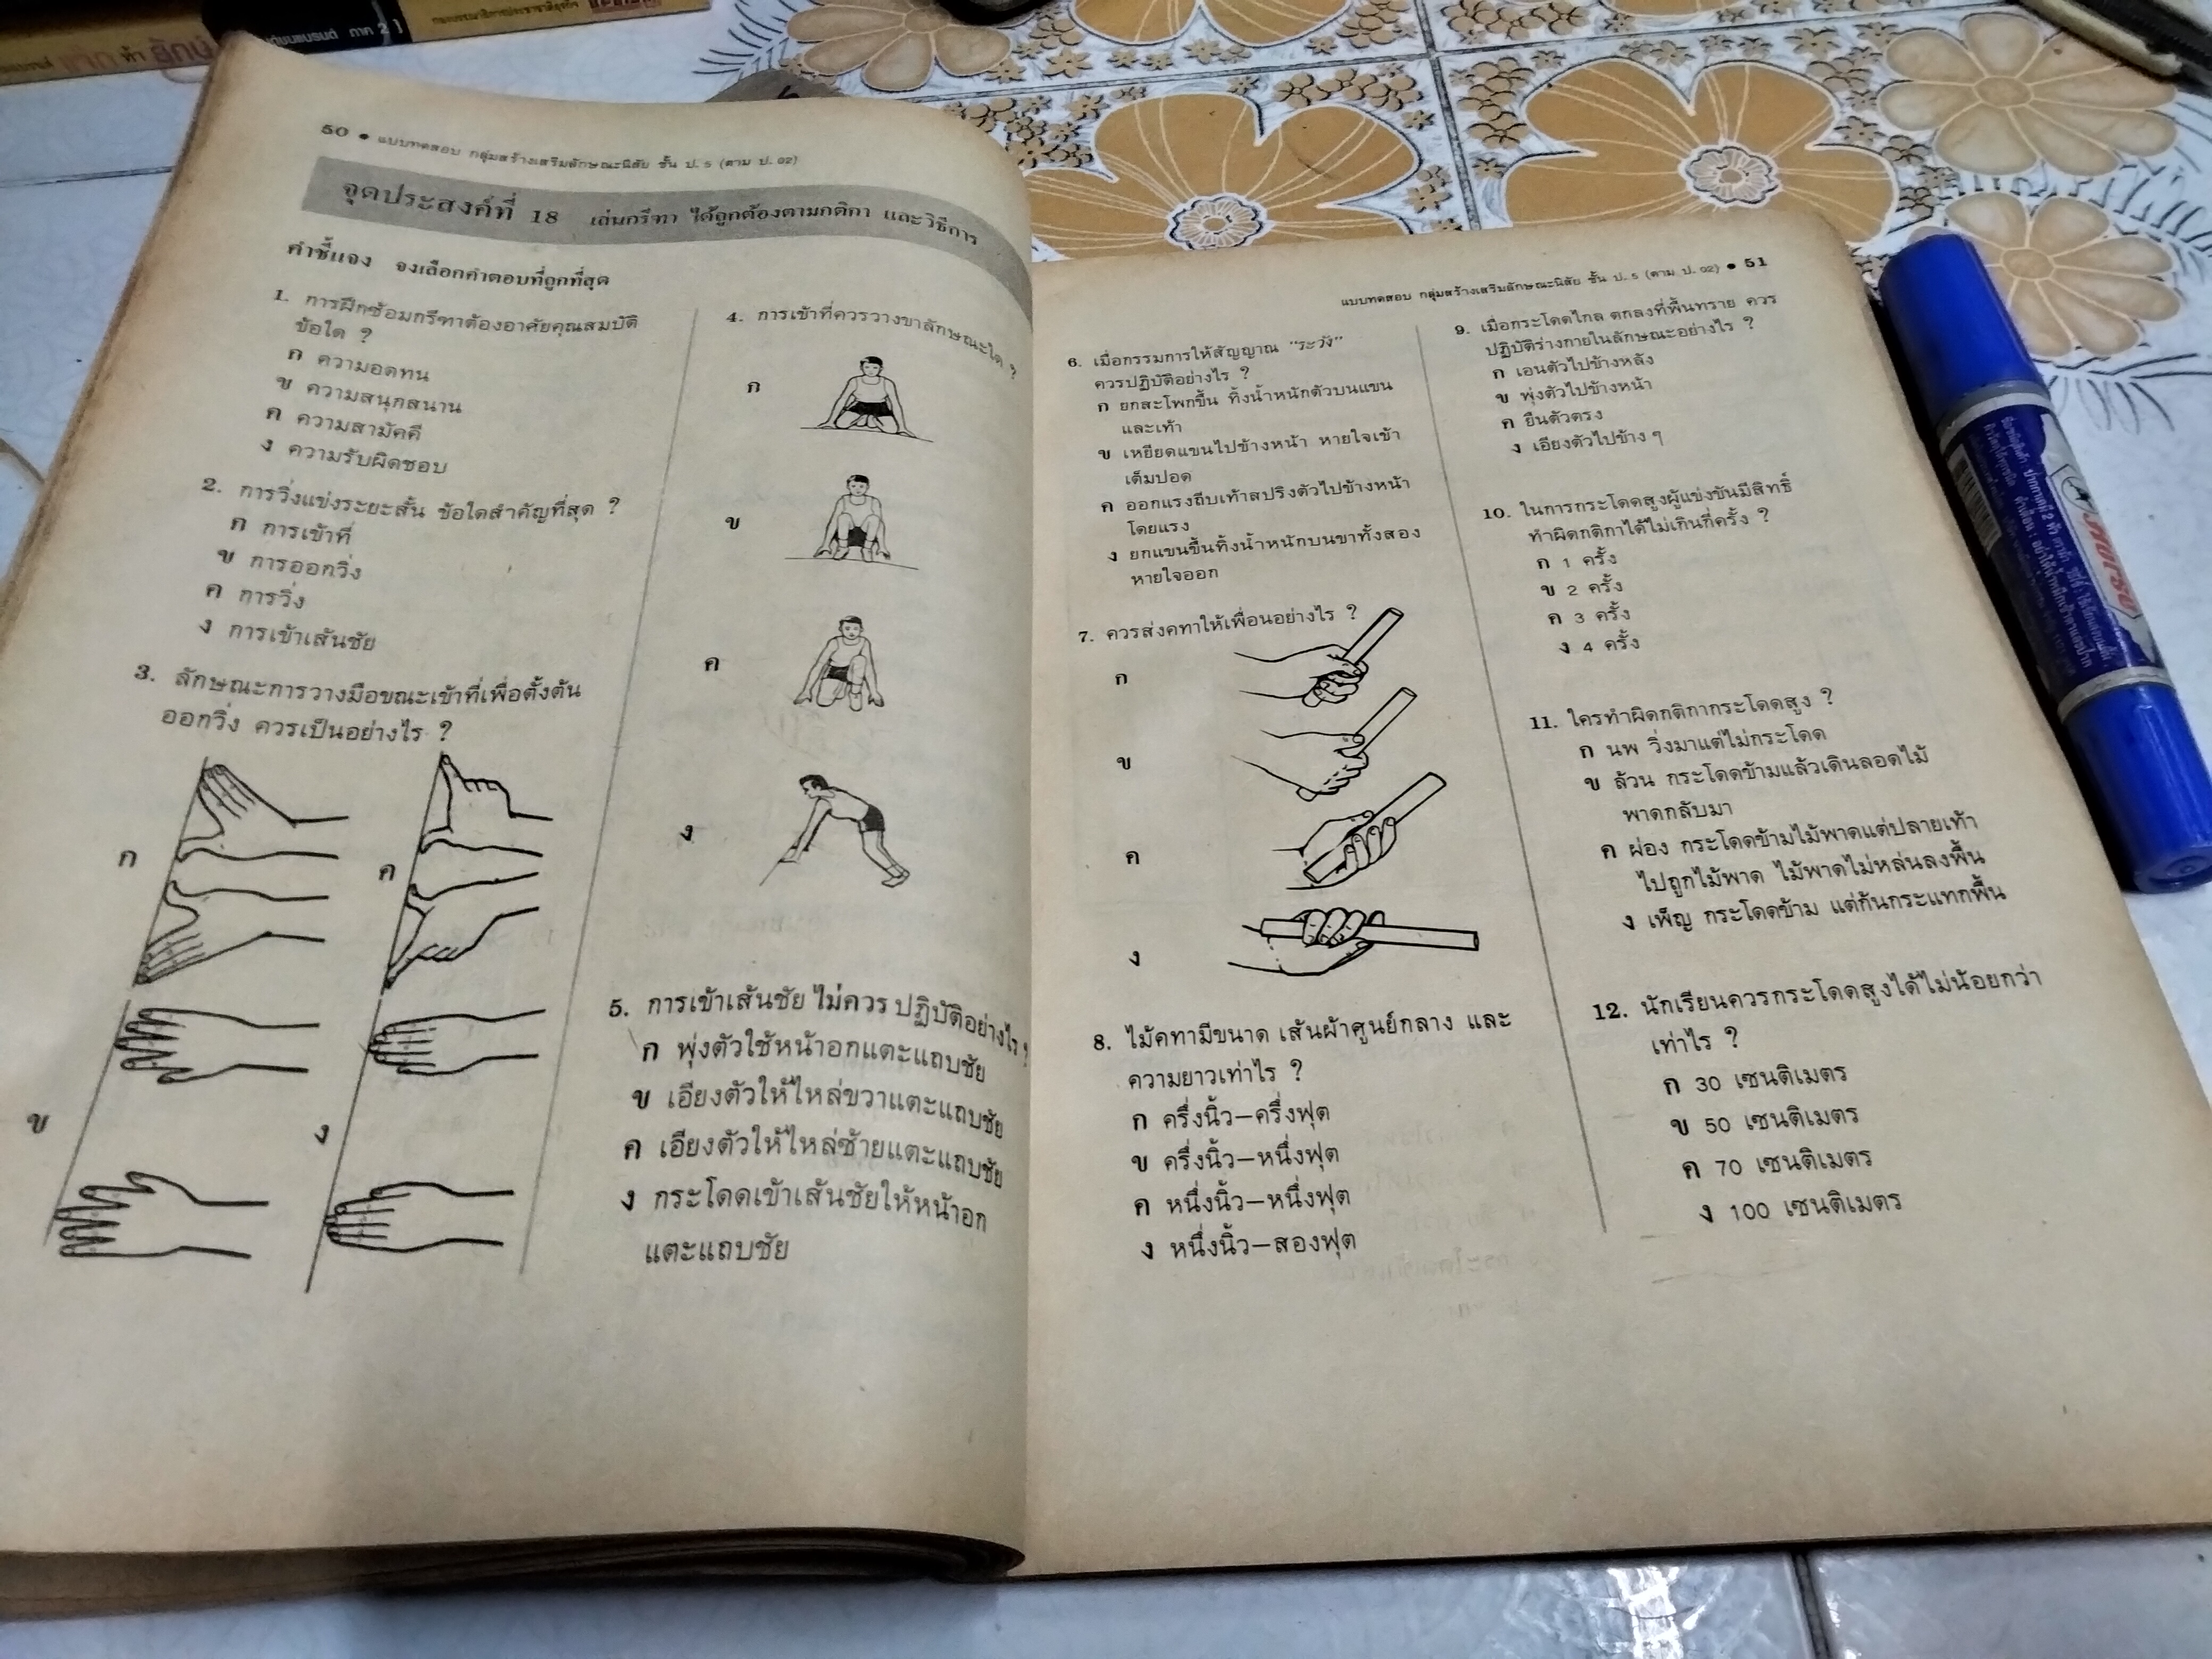 ภาค 2 ]
ยักษ์
50 ● แบบทดสอบ กลุ่มสร้างเสริมลักษณะนิสัย ชั้น ป. 5 (ตาม ป. 02)
จุดประสงค์ที่ 18 เล่นกรีฑา ได้ถูกต้องตามกติกา และวิธีการ
คำชี้แจง จงเลือกคำตอบที่ถูกที่สุด
1. การฝึกซ้อมกรีฑาต้องอาศัยคุณสมบัติ
ข้อใด ?
ก ความอดทน
ข ความสนุกสนาน
ค ความสามัคคี
ง ความรับผิดชอบ
2. การวิ่งแข่งระยะสั้น ข้อใดสำคัญที่สุด ?
ก การเข้าที่
ข การออกวิ่ง
ค การวิ่ง
ง การเข้าเส้นชัย
3. ลักษณะการวางมือขณะเข้าที่เพื่อตั้งต้น
ออกวิ่ง ควรเป็นอย่างไร ?
ก
ค
ข
ง
4. การเข้าที่ควรวางขาลักษณะใด ?
ก
ข
ค
ง
5. การเข้าเส้นชัย ไม่ควร ปฏิบัติอย่างไร ?
ก พุ่งตัวใช้หน้าอกแตะแถบชัย
ข เอียงตัวให้ไหล่ขวาแตะแถบชัย
ค เอียงตัวให้ไหล่ซ้ายแตะแถบชัย
ง กระโดดเข้าเส้นชัยให้หน้าอก
แตะแถบชัย
แบบทดสอบ กลุ่มสร้างเสริมลักษณะนิสัย ชั้น ป. 5 (ตาม ป. 02) ● 51
6. เมื่อกรรมการให้สัญญาณ "ระวัง"
ควรปฏิบัติอย่างไร ?
ก ยกสะโพกขึ้น ทิ้งน้ำหนักตัวบนแขน
และเท้า
ข เหยียดแขนไปข้างหน้า หายใจเข้า
เต็มปอด
ค ออกแรงถีบเท้าสปริงตัวไปข้างหน้า
โดยแรง
ง ยกแขนขึ้นทิ้งน้ำหนักบนขาทั้งสอง
หายใจออก
7. ควรส่งคทาให้เพื่อนอย่างไร ?
ก
ข
ค
ง
8. ไม้คทามีขนาด เส้นผ้าศูนย์กลาง และ
ความยาวเท่าไร ?
ก ครึ่งนิ้ว–ครึ่งฟุต
ข ครึ่งนิ้ว–หนึ่งฟุต
ค หนึ่งนิ้ว–หนึ่งฟุต
ง หนึ่งนิ้ว–สองฟุต
9. เมื่อกระโดดไกล ตกลงที่พื้นทราย ควร
ปฏิบัติร่างกายในลักษณะอย่างไร ?
ก เอนตัวไปข้างหลัง
ข พุ่งตัวไปข้างหน้า
ค ยืนตัวตรง
ง เอียงตัวไปข้าง ๆ
10. ในการกระโดดสูงผู้แข่งขันมีสิทธิ์
ทำผิดกติกาได้ไม่เกินกี่ครั้ง ?
ก 1 ครั้ง
ข 2 ครั้ง
ค 3 ครั้ง
ง 4 ครั้ง
11. ใครทำผิดกติกากระโดดสูง ?
ก นพ วิ่งมาแต่ไม่กระโดด
ข ล้วน กระโดดข้ามแล้วเดินลอดไม้
พาดกลับมา
ค ผ่อง กระโดดข้ามไม้พาดแต่ปลายเท้า
ไปถูกไม้พาด ไม้พาดไม่หล่นลงพื้น
ง เพ็ญ กระโดดข้าม แต่ก้นกระแทกพื้น
12. นักเรียนควรกระโดดสูงได้ไม่น้อยกว่า
เท่าไร ?
ก 30 เซนติเมตร
ข 50 เซนติเมตร
ค 70 เซนติเมตร
ง 100 เซนติเมตร
ตราม้า